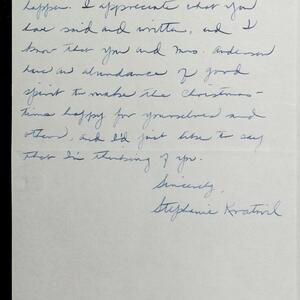 happen. I appreciate what you
have said and written, and I
know that you and Mrs. Anderson
have an abundance of good
spirit to make the Christmas-
time happy for yourselves and
others, and I'd just like to say
that I'm thinking of you.
Sincerely,
Stephanie Kratwil